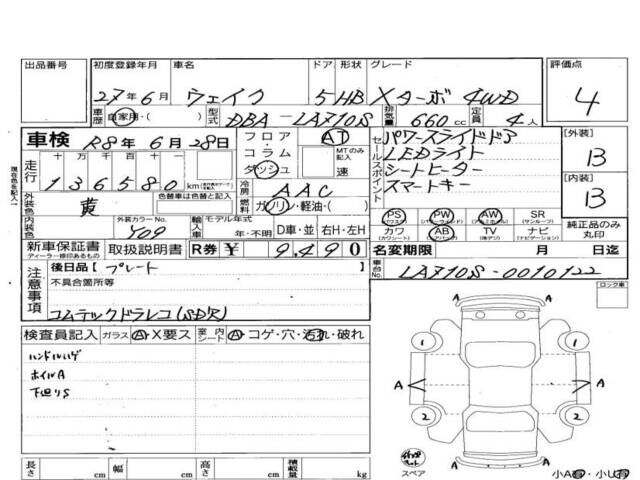 出品番号 初度登録年月 車名 ドア 形状 グレード 評価点
27年6月 ウェイク 5 HB Xターボ 4WD 4
車歴 自家用・( ) 型式 DBA-LA710S 排気量 660 cc 定員 4人
車検 R8年6月28日 フロア・コラム・ダッシュ AT MTのみ記入 速 セールスポイント パワースライドドア [外装]
LEDライト B
走行 十 万 千 百 十 シートヒーター
136580 km スマートキー [内装]
冷房 AAC B
外装色 黄 色替車は色替と記入 燃料 ガソリン・軽油・( )
PS PW AW SR
(パワステ) (パワーウィンドウ) (アルミホイル) (サンルーフ)
内装色 外装カラーNo. Y09 輸入車 モデル年式 年・不明 D車・並 右H・左H カワ AB TV ナビ 純正品のみ丸印
(カワシート) (エアバッグ) (地デジ) (ナビゲーション)
新車保証書 取扱説明書 R券 ¥ 9,490 名変期限 月 日迄
ディーラー捺印あるもの
車台No. LA710S-0010122
注意事項 後日品 [プレート ]
不具合箇所等
コムテックドラレコ(SD欠)
ロック車
検査員記入 ガラス A・X要ス 室内シート A・コゲ・穴・汚れ・破れ
ハンドルハゲ
ホイルA
下廻りS
A A
2 2
2 2
長さ cm 幅 cm 高さ cm 積載量 kg
スペア
小A有・小U有
現在色を記入↑